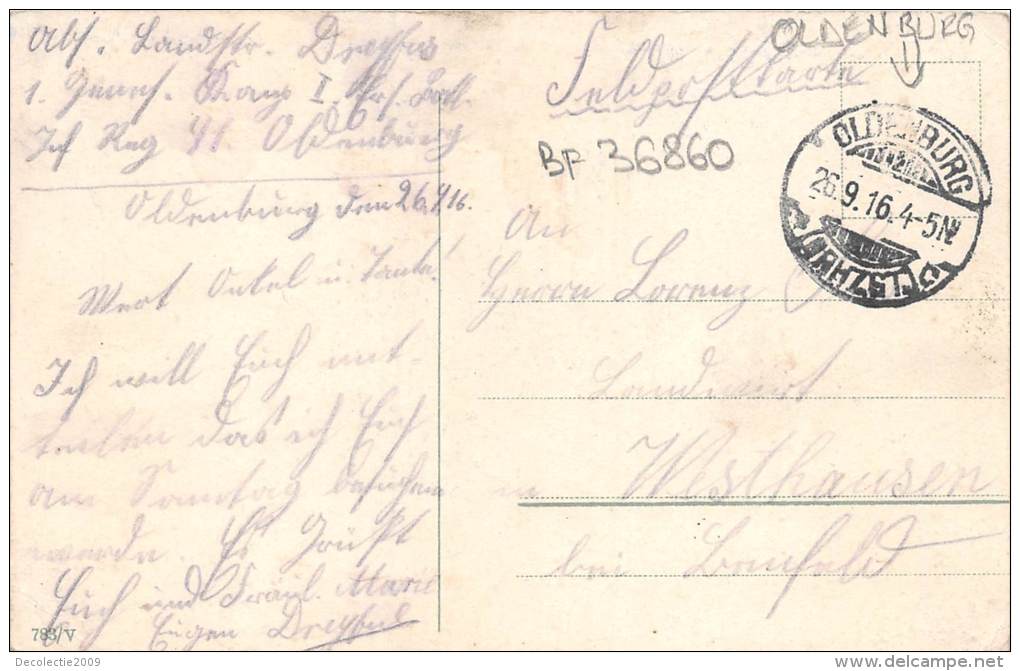 Abs. Landstr. Dreyfus
1. Genes. Komp I. Ers. Batl.
Inf Reg 91 Oldenburg
Oldenburg den 26.9.16.
Wert Onkel u. Tante!
Ich will Euch mit-
teilen das ich Euch
am Sonntag besuchen
werde. Es Grüßt
Euch und Fräul. Marie
Eugen Dreyfus
783/V
Feldpostkarte
OLDENBURG
BF 36860
OLDENBURG
26.9.16.4-5N
An
Herrn Lorenz
Landwirt
in Westhausen
bei Benfeld
Decolectie2009
delcampe.net